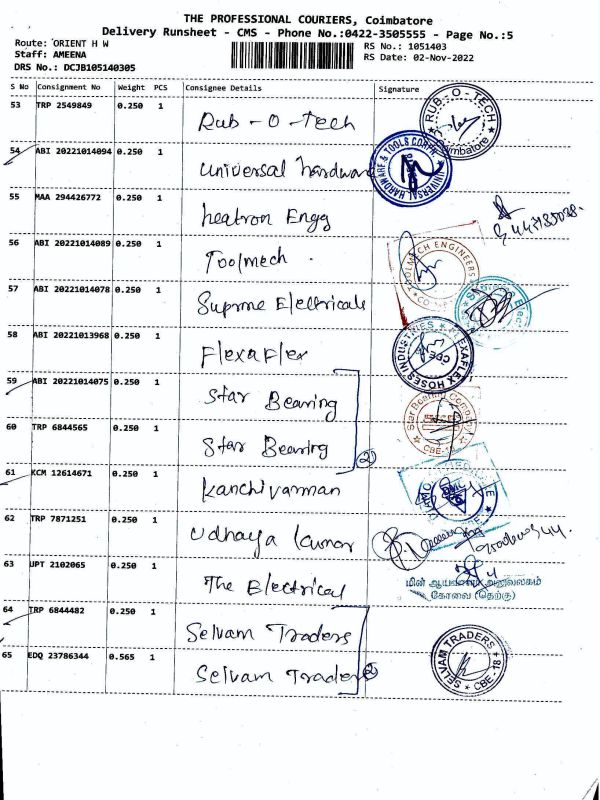 THE PROFESSIONAL COURIERS, Coimbatore
Delivery Runsheet - CMS - Phone No.:0422-3505555 - Page No.:5
Route: ORIENT H W
RS No.: 1051403
Staff: AMEENA
RS Date: 02-Nov-2022
DRS No.: DCJB105140305
S No Consignment No Weight PCS Consignee Details Signature
53 TRP 2549849 0.250 1 Rub-O-Tech
RUB-O-TECH Coimbatore
54 ABI 20221014094 0.250 1 Universal hardware
UNIVERSAL HARDWARE & TOOLS CORPN
55 MAA 294426772 0.250 1 heatron Engg
56 ABI 20221014089 0.250 1 Toolmech .
TOOLMECH ENGINEERS
57 ABI 20221014078 0.250 1 Suprme Electricals
58 ABI 20221013968 0.250 1 Flexaflex
FLEXAFLEX HOSES INDUSTRIES CBE
59 ABI 20221014075 0.250 1 Star Bearing
Star Bearing Company CBE-18
60 TRP 6844565 0.250 1 Star Bearing (2)
61 KCM 12614671 0.250 1 Kanchivannan
62 TRP 7871251 0.250 1 Udhaya Kumar
63 UPT 2102065 0.250 1 The Electrical
கோவை (தெற்கு)
64 TRP 6844482 0.250 1 Selvam Traders
65 EDQ 23786344 0.565 1 Selvam Traders (2)
SELVAM TRADERS CBE-18